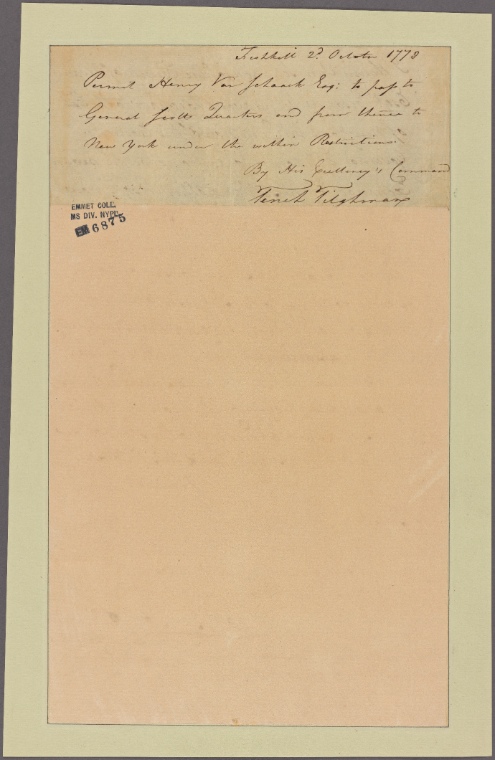 Fishkill 2d October 1778
Permit Henry Van Schaack Esqr: to pass to
General Scotts Quarters and from thence to
New York under the within Restrictions
By His Excellency's Command
Tench Tilghman
EMMET COLL.
MS DIV. NYPL
EM 6875